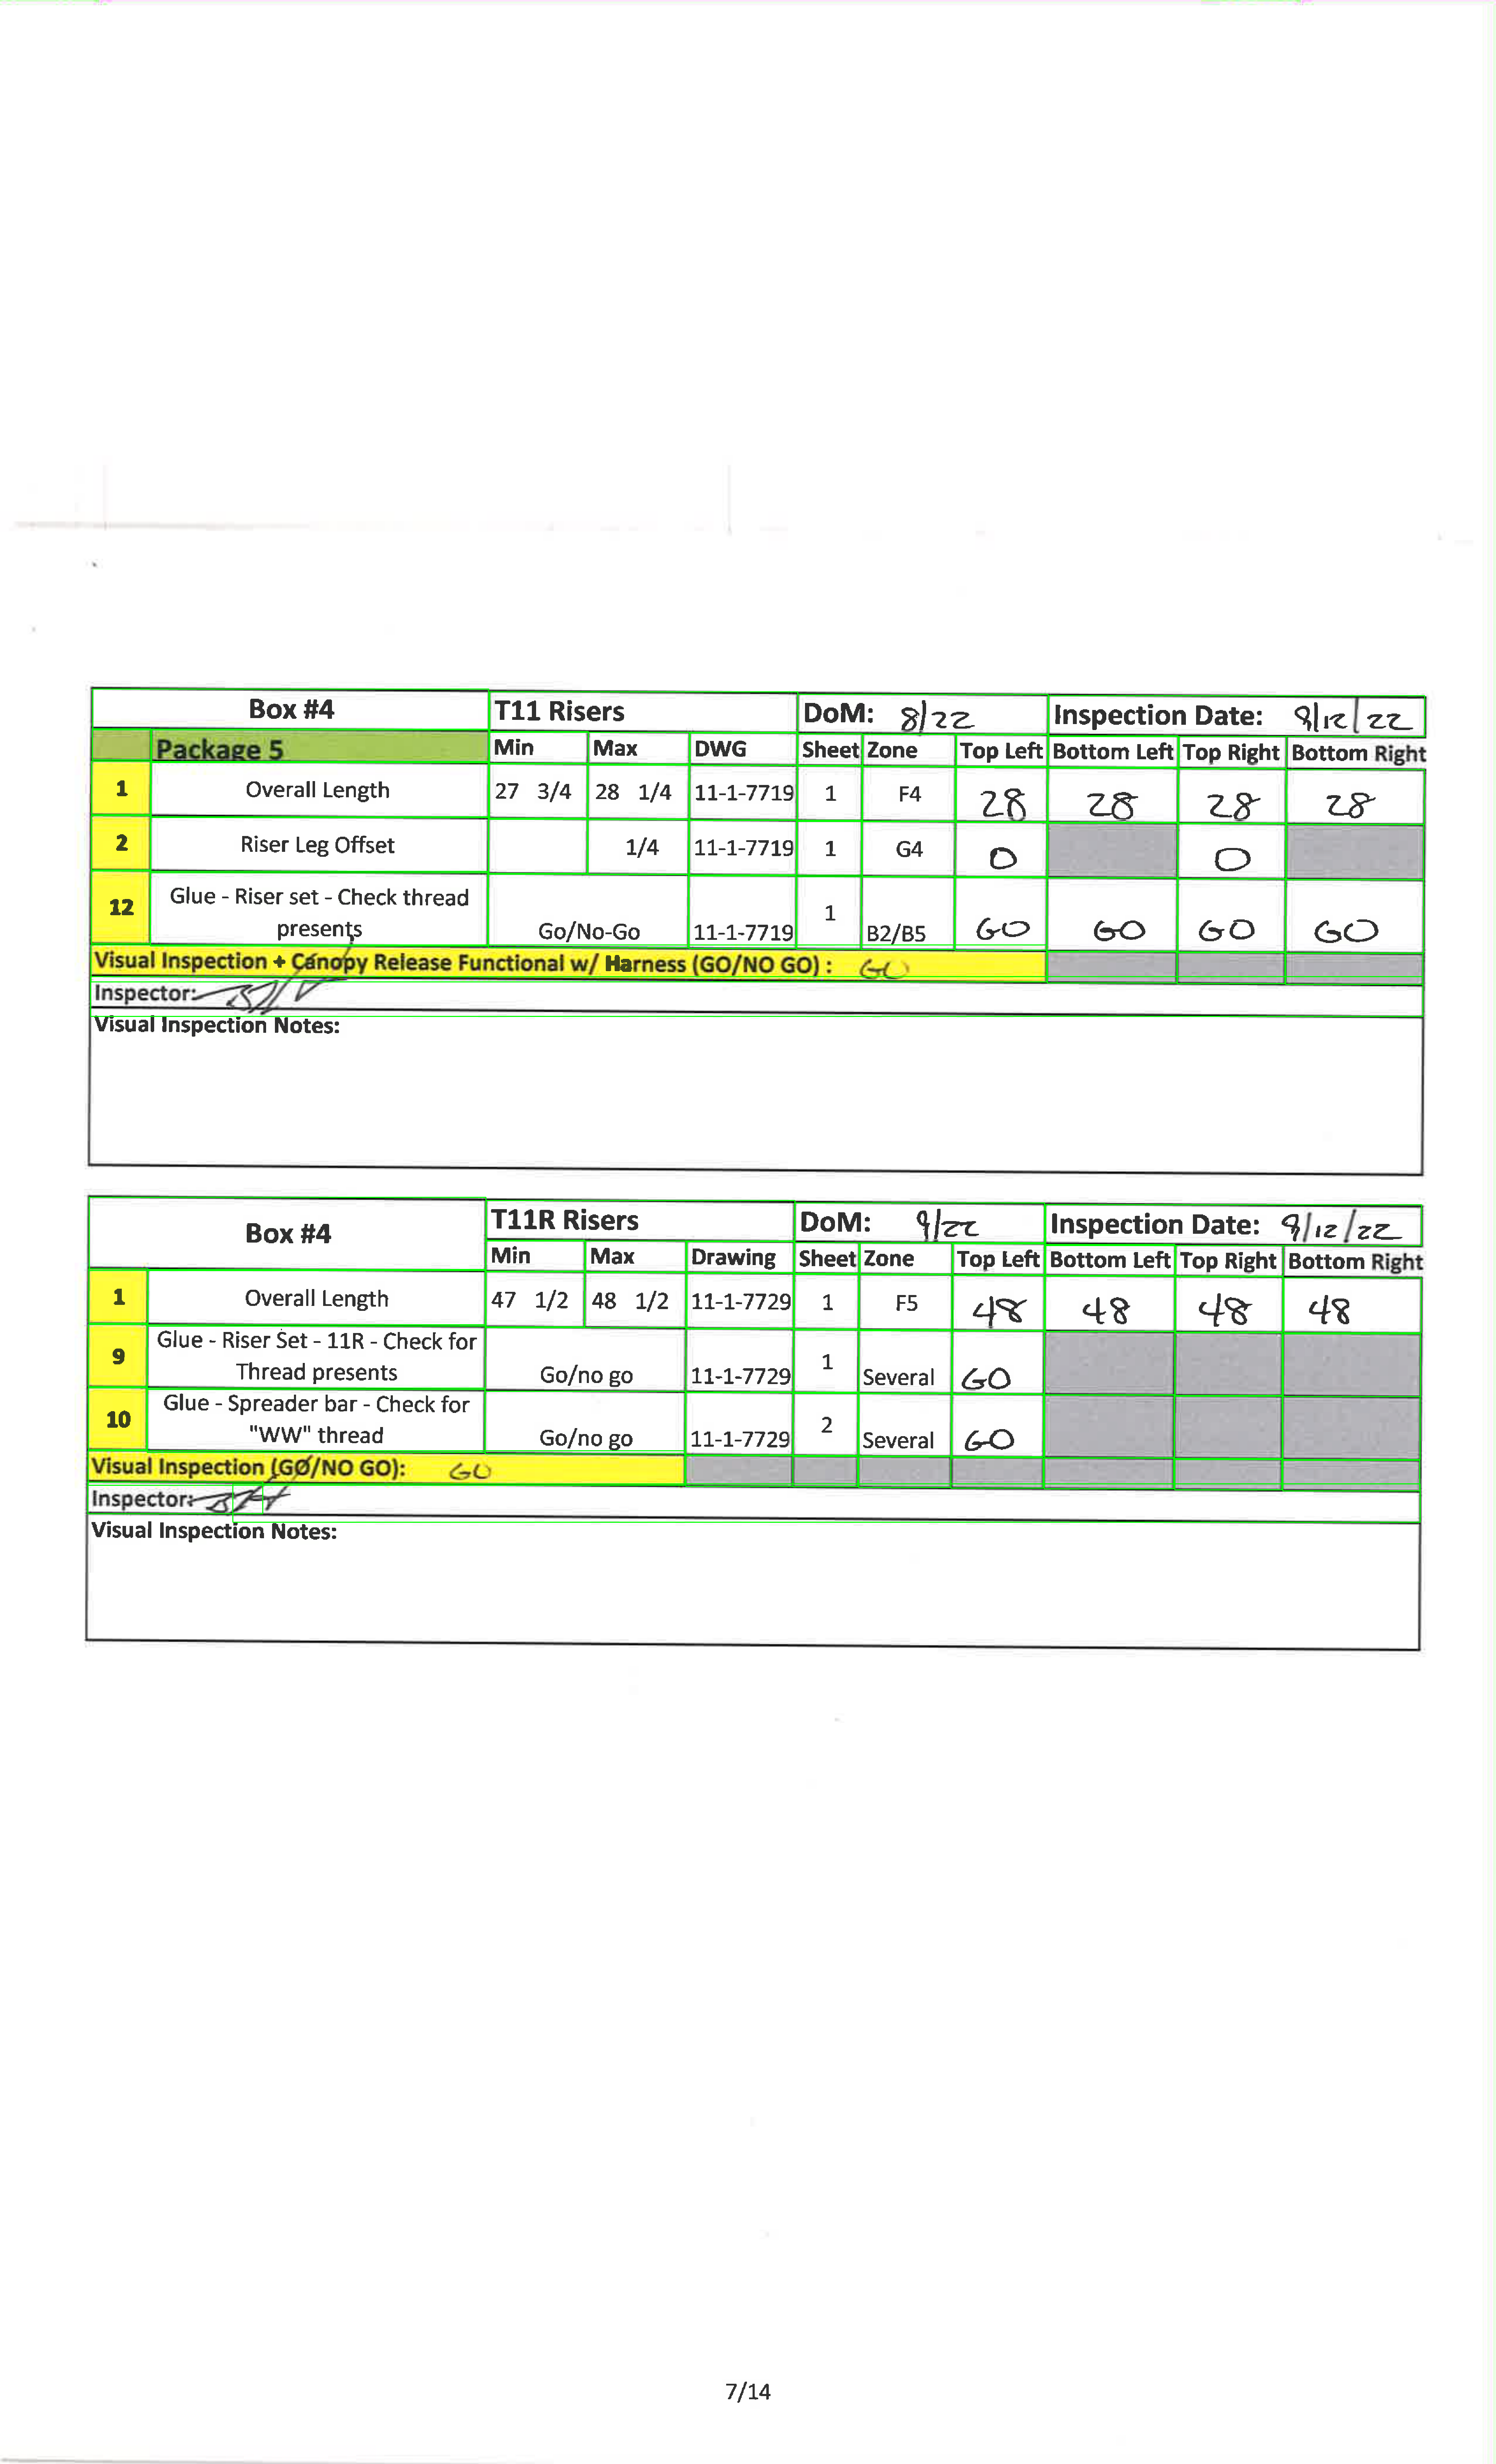 Box #4 T11 Risers DoM: 8/22 Inspection Date: 9/12/22
Package 5 Min Max DWG Sheet Zone Top Left Bottom Left Top Right Bottom Right
1 Overall Length 27 3/4 28 1/4 11-1-7719 1 F4 28 28 28 28
2 Riser Leg Offset 1/4 11-1-7719 1 G4 0 0
12 Glue - Riser set - Check thread
presents Go/No-Go 11-1-7719 1 B2/B5 GO GO GO GO
Visual Inspection + Canopy Release Functional w/ Harness (GO/NO GO) : GO
Inspector:
Visual Inspection Notes:
Box #4 T11R Risers DoM: 9/22 Inspection Date: 9/12/22
Min Max Drawing Sheet Zone Top Left Bottom Left Top Right Bottom Right
1 Overall Length 47 1/2 48 1/2 11-1-7729 1 F5 48 48 48 48
9 Glue - Riser Set - 11R - Check for
Thread presents Go/no go 11-1-7729 1 Several GO
10 Glue - Spreader bar - Check for
"WW" thread Go/no go 11-1-7729 2 Several GO
Visual Inspection (GO/NO GO): GO
Inspector:
Visual Inspection Notes:
7/14